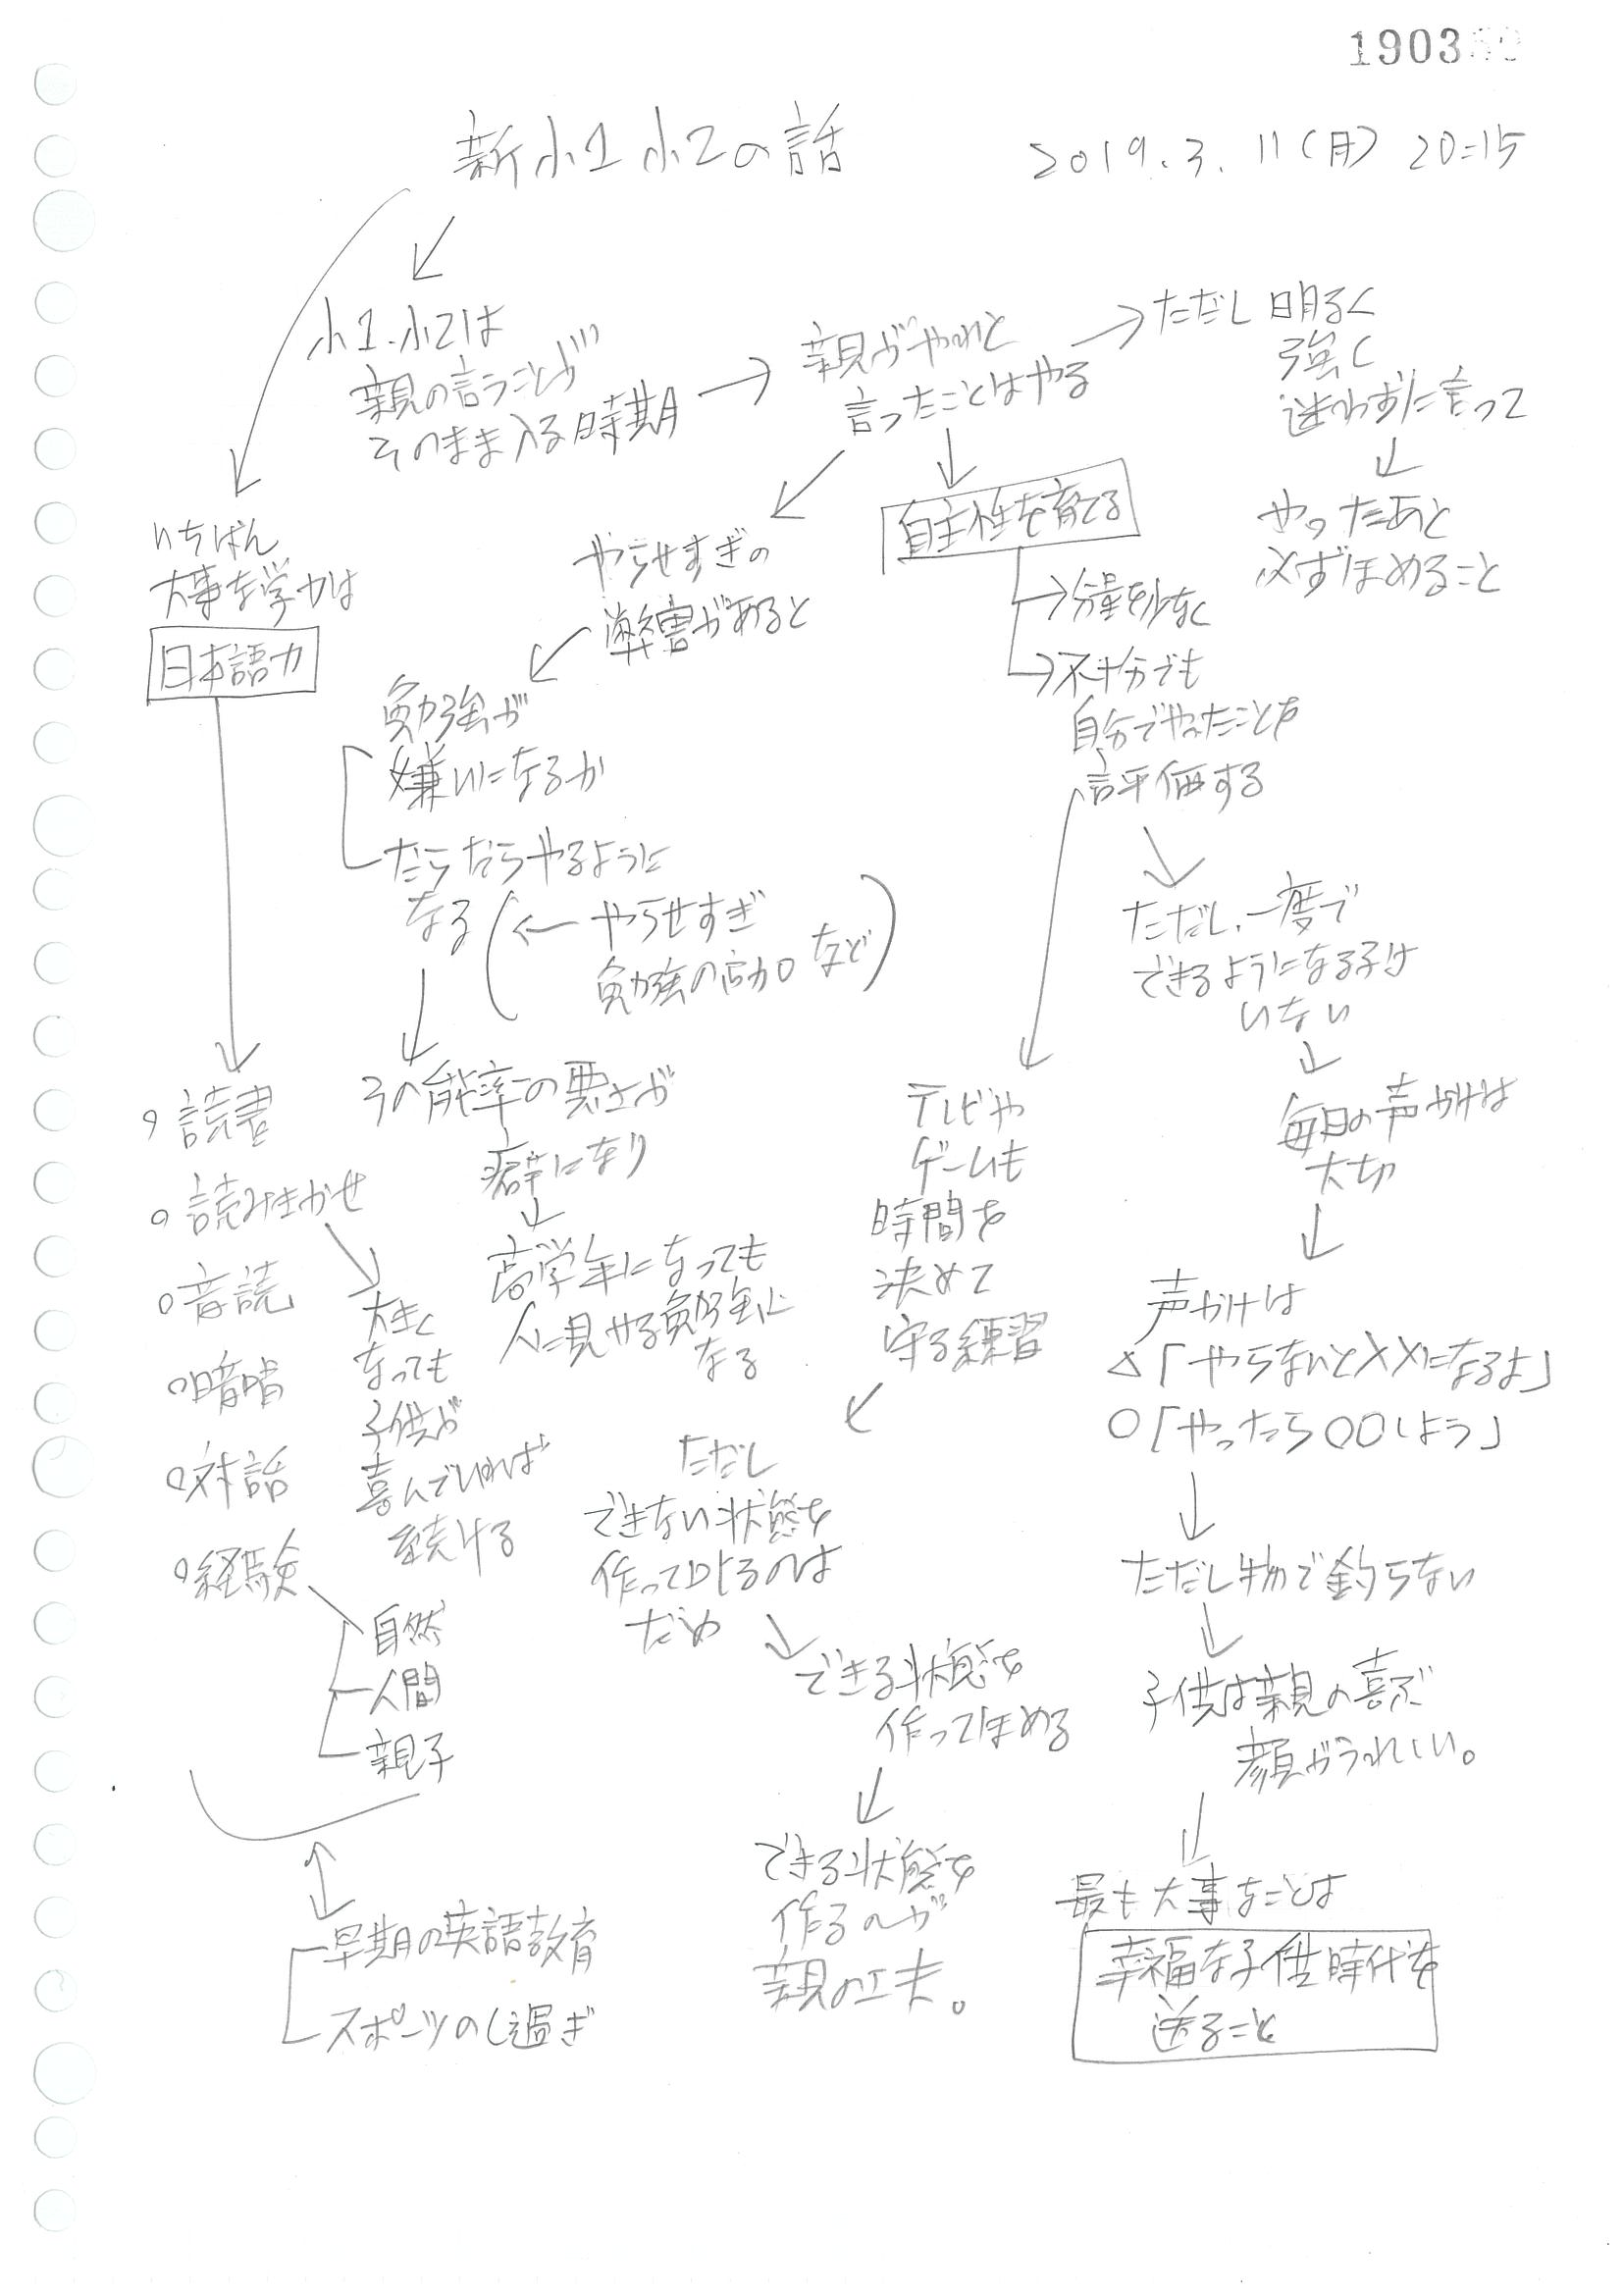 1903
新小1小2の話
2019.3.11(月) 20:15
小1.小2は
親の言うことが
そのまま入る時期
親がやれと
言ったことはやる
ただし明るく
強く
迷わずに言って
やったあと
必ずほめること
自主性を育てる
分量を少なく
不十分でも
自分でやったことを
評価する
ただし、一度で
できるようになる子は
いない
毎日の声かけは
大切
声かけは
△「やらないと××になるよ」
○「やったら○○しよう」
ただし物で釣らない
子供は親の喜ぶ
顔がうれしい。
最も大事なことは
幸福な子供時代を
送ること
テレビや
ゲームも
時間を
決めて
守る練習
ただし
できない状態を
作って叱るのは
だめ
できる状態を
作ってほめる
できる状態を
作るのが
親の工夫。
やらせすぎの
弊害があると
勉強が
嫌いになるか
だらだらやるように
なる
(←やらせすぎ
勉強の追加など)
その能率の悪さが
癖になり
高学年になっても
人に見せる勉強に
なる
いちばん
大事な学力は
日本語力
○読書
○読みきかせ
大きく
なっても
子供が
喜んでいれば
続ける
○音読
○暗唱
○対話
○経験
自然
人間
親子
早期の英語教育
スポーツのし過ぎ